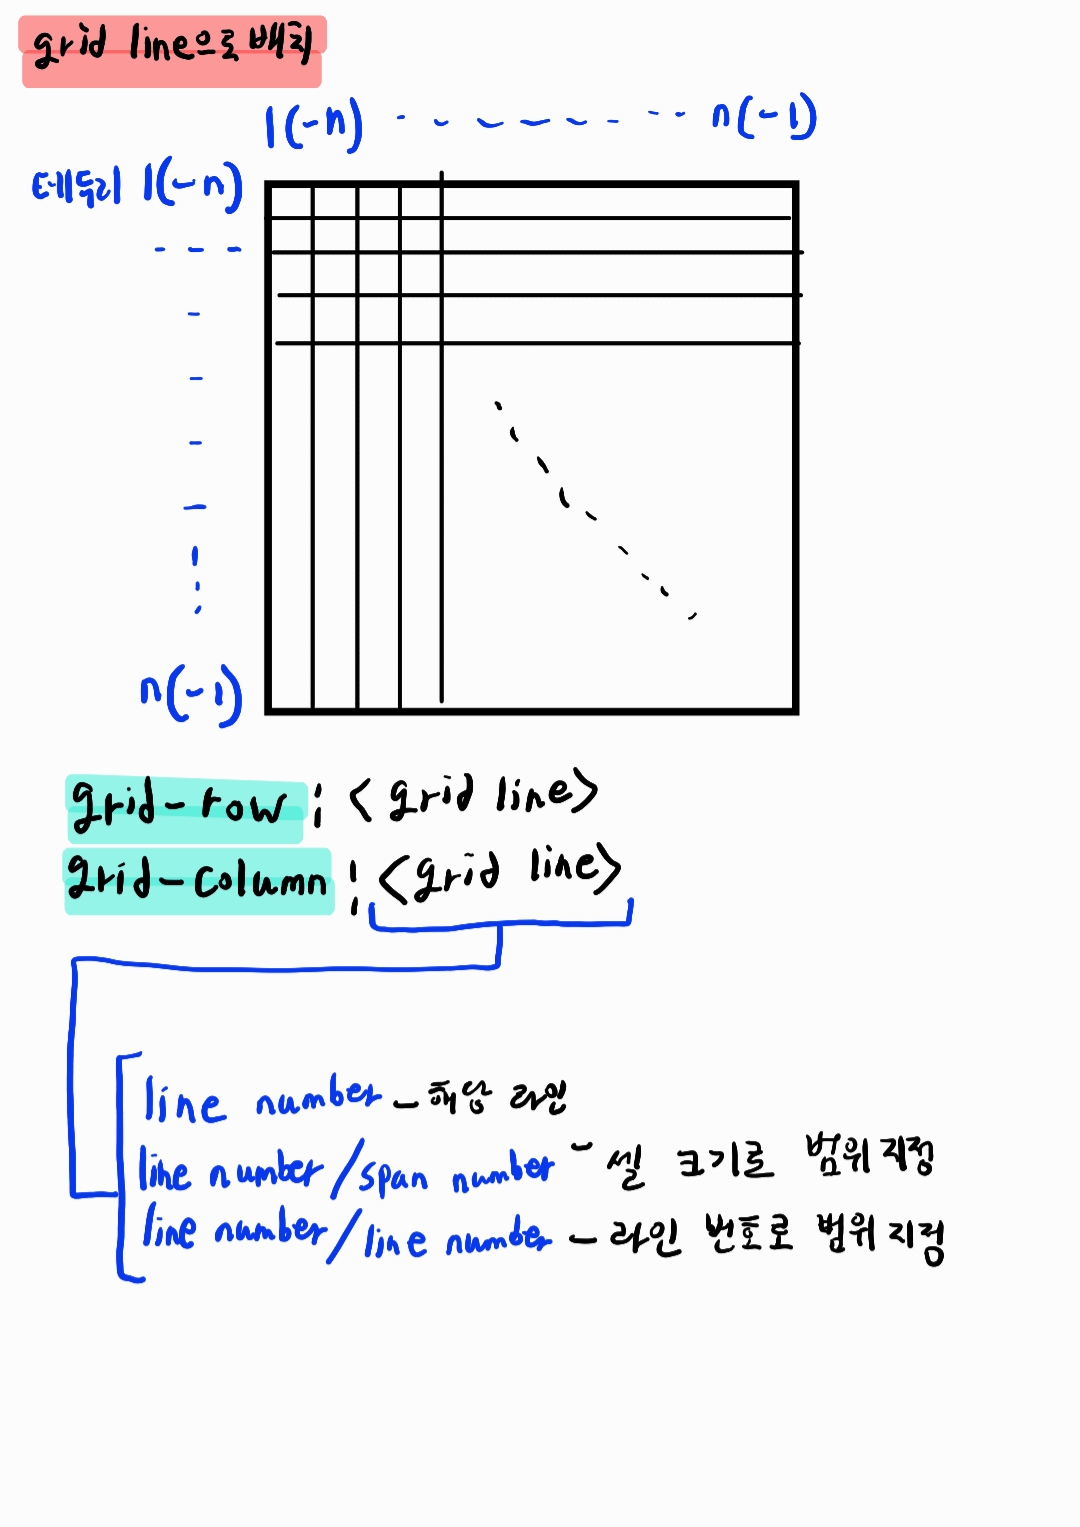 grid line으로 배치
1(-n) n(-1)
테두리 1(-n)
n(-1)
grid-row : <grid line>
grid-column : <grid line>
line number - 해당 라인
line number/span number - 셀 크기로 범위 지정
line number/line number - 라인 번호로 범위 지정